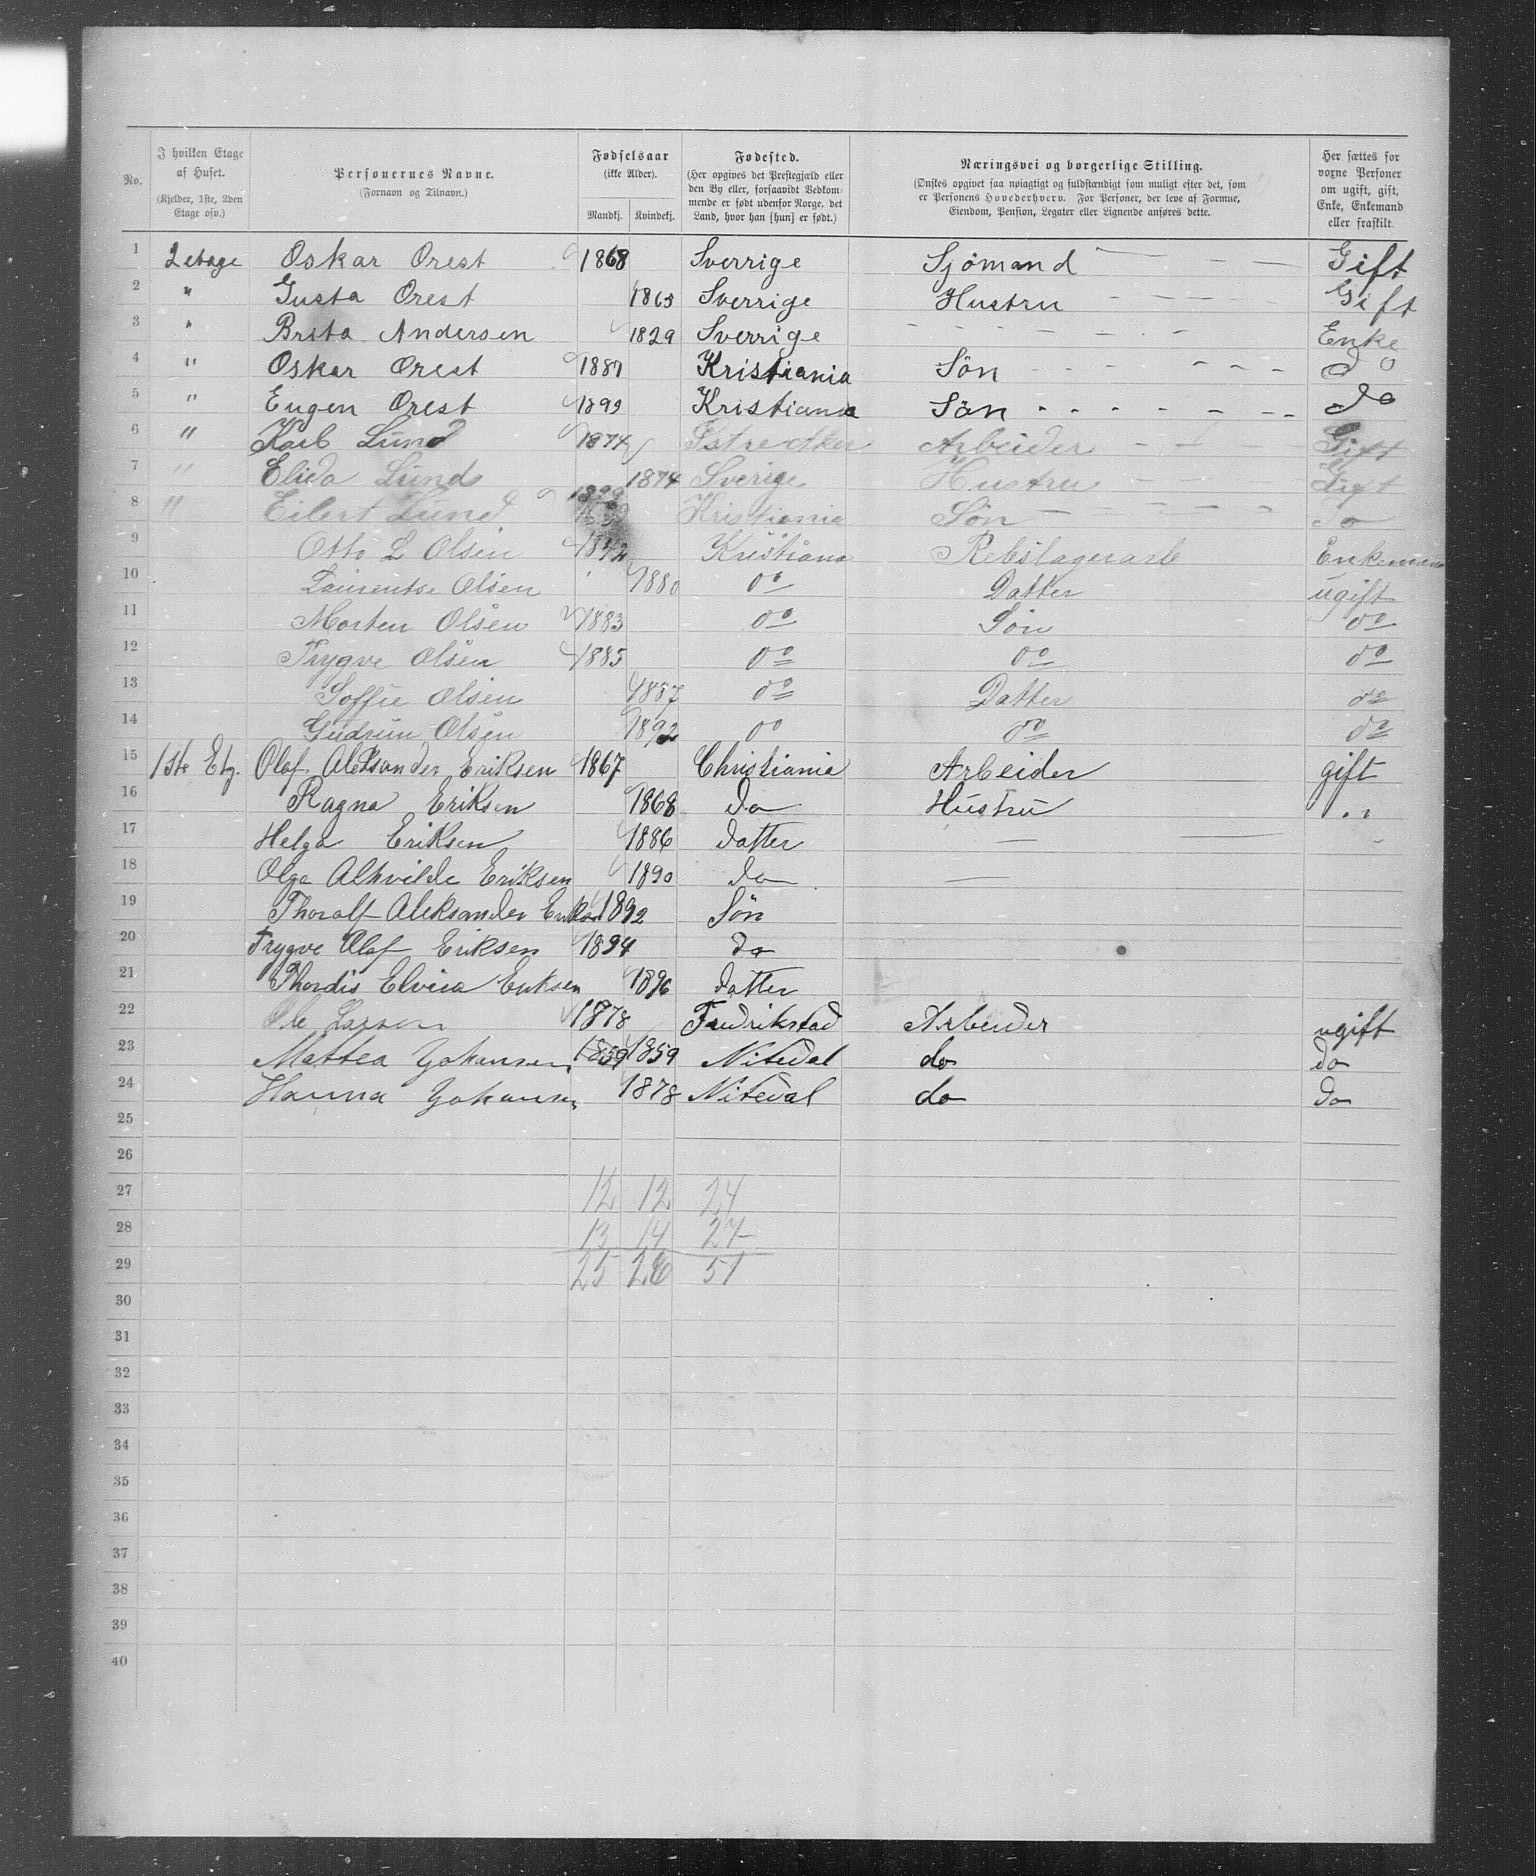 No. | I hvilken Etage af Huset. (Kjelder, 1ste, 2den Etage osv.) | Personernes Navne. (Fornavn og Tilnavn.) | Fødselsaar (ikke Alder). Mandkj. | Kvindekj. | Fødested. (Her opgives det Prestegjæld eller den By eller, forsaavidt Vedkommende er født udenfor Norge, det Land, hvor han [hun] er født.) | Næringsvei og borgerlige Stilling. (Ønskes opgivet saa nøiagtigt og fuldstændigt som muligt efter det, som er Personens Hovederhverv. For Personer, der leve af Formue, Eiendom, Pension, Legater eller Lignende anføres dette. | Her sættes for voxne Personer om ugift, gift, Enke, Enkemand eller fraskilt.
1 2 etage Oskar Orest 1868 Sverrige Sjömand Gift
2 " Gusta Orest 1863 Sverrige Hustru Gift
3 " Brita Andersen 1829 Sverrige Enke
4 " Oskar Orest 1887 Kristiania Sön do
5 " Eugen Orest 1899 Kristiania Sön do
6 " Karl Lund 1874 Østre Aker Arbeider Gift
7 " Elida Lund 1874 Sverige Hustru Gift
8 " Eilert Lund 1899 Kristiania Sön do
9 Otto L Olsen 1842 Kristiana Rebslagerarb Enkemand
10 Laurentse Olsen 1880 do Datter ugift
11 Morten Olsen 1883 do Søn do
12 Trygve Olsen 1885 do do do
13 Soffie Olsen 1887 do Datter do
14 Gudrun Olsen 1892 do do do
15 1ste Etg. Olaf Aleksander Eriksen 1867 Christiania Arbeider gift
16 Ragna Eriksen 1868 do Hustru "
17 Helga Eriksen 1886 datter
18 Olga Alhvilde Eriksen 1890 do
19 Thoralf Aleksander Eriksen 1892 Sön
20 Trygve Olaf Eriksen 1894 do
21 Thordis Elvira Eriksen 1896 datter
22 Ole Larsen 1878 Fredrikstad Arbeider ugift
23 Mattea Johansen 1859 1859 Nitedal do do
24 Hanna Johansen 1878 Nitedal do do
25
26
27 12 12 24
28 13 14 27
29 25 26 51
30
31
32
33
34
35
36
37
38
39
40